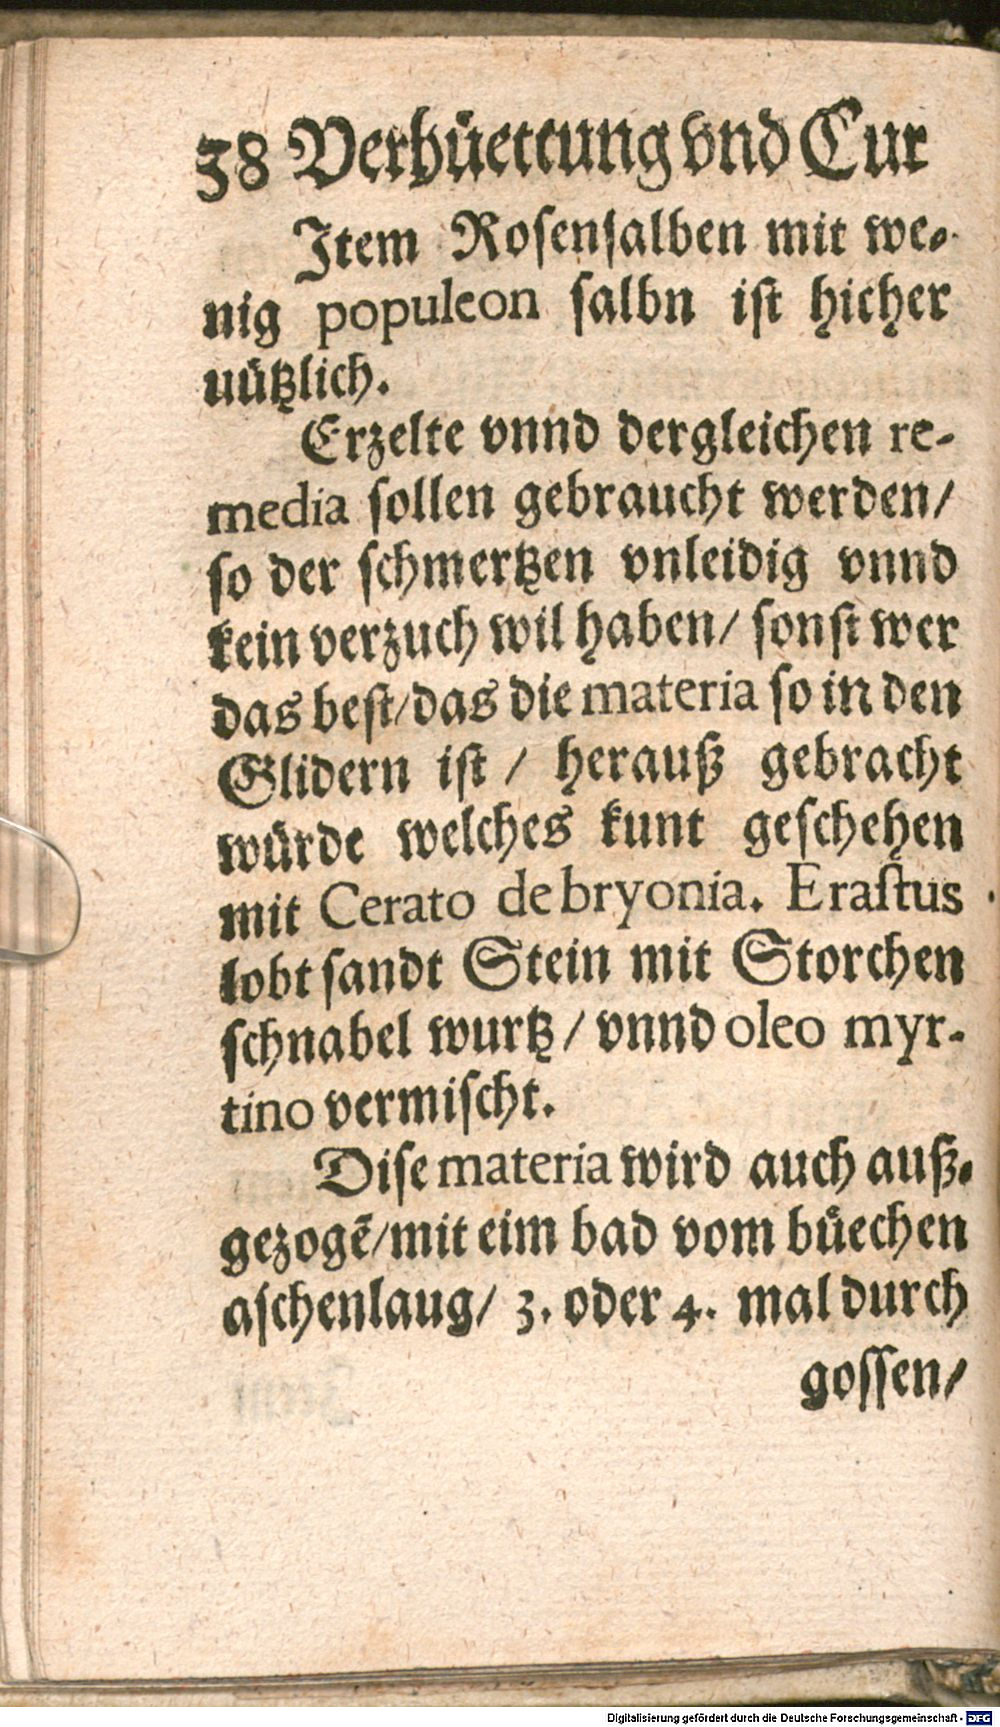 38 Verhüettung vnd Cur
Item Rosensalben mit we-
nig populeon salbn ist hieher
nützlich.
Erzelte vnnd dergleichen re-
media sollen gebraucht werden/
so der schmertzen vnleidig vnnd
kein verzuch wil haben/ sonst wer
das best/ das die materia so in den
Glidern ist / herauß gebracht
würde welches kunt geschehen
mit Cerato de bryonia. Erastus
lobt sandt Stein mit Storchen
schnabel wurtz / vnnd oleo myr-
tino vermischt.
Dise materia wird auch auß-
gezogẽ/ mit eim bad vom büechen
aschenlaug/ 3. oder 4. mal durch
gossen/
Digitalisierung gefördert durch die Deutsche Forschungsgemeinschaft - DFG